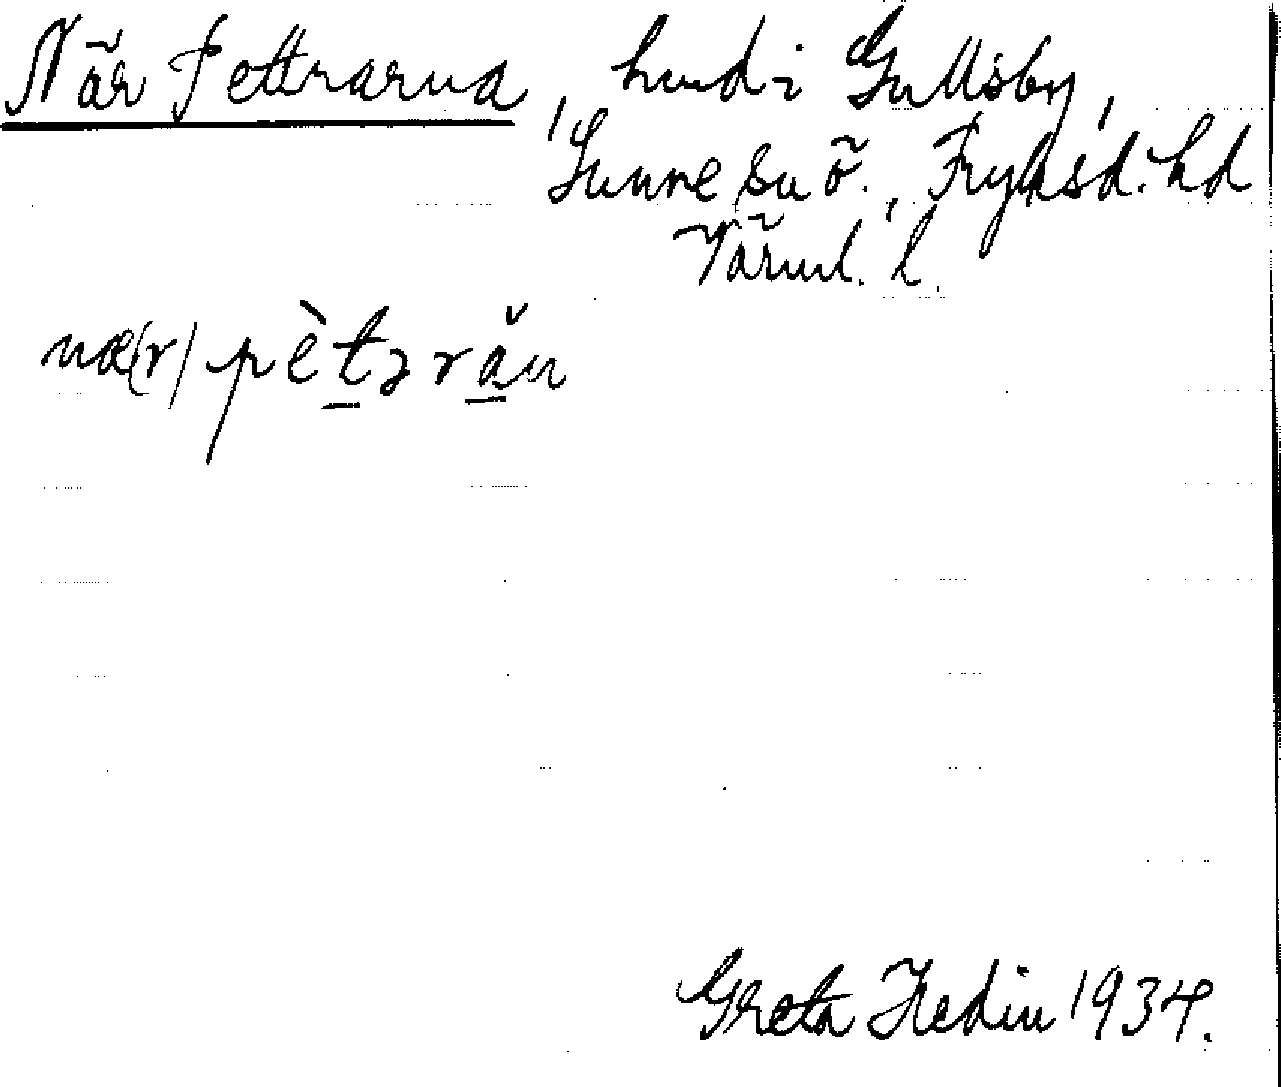 När Pettrarna, lund i Gullsby,
Sunne sn ö., Fryksd. hd
Värml. l.
næ(r) pètərǎn
Greta Hedin 1934.